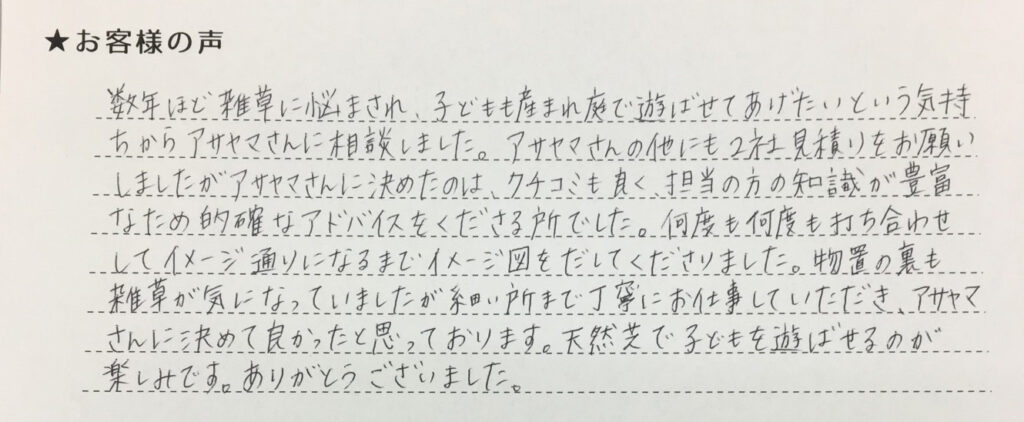 ★お客様の声
数年ほど雑草に悩まされ、子どもも産まれ庭で遊ばせてあげたいという気持
ちからアサヤマさんに相談しました。アサヤマさんの他にも2社見積りをお願い
しましたがアサヤマさんに決めたのは、クチコミも良く、担当の方の知識が豊富
なため的確なアドバイスをくださる所でした。何度も何度も打ち合わせ
してイメージ通りになるまでイメージ図をだしてくださりました。物置の裏も
雑草が気になっていましたが細い所まで丁寧にお仕事していただき、アサヤマ
さんに決めて良かったと思っております。天然芝で子どもを遊ばせるのが
楽しみです。ありがとうございました。